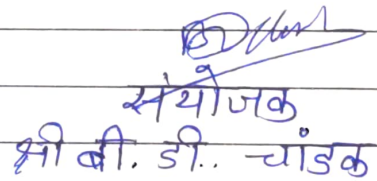 संयोजक
श्री बी. डी.. चांडक